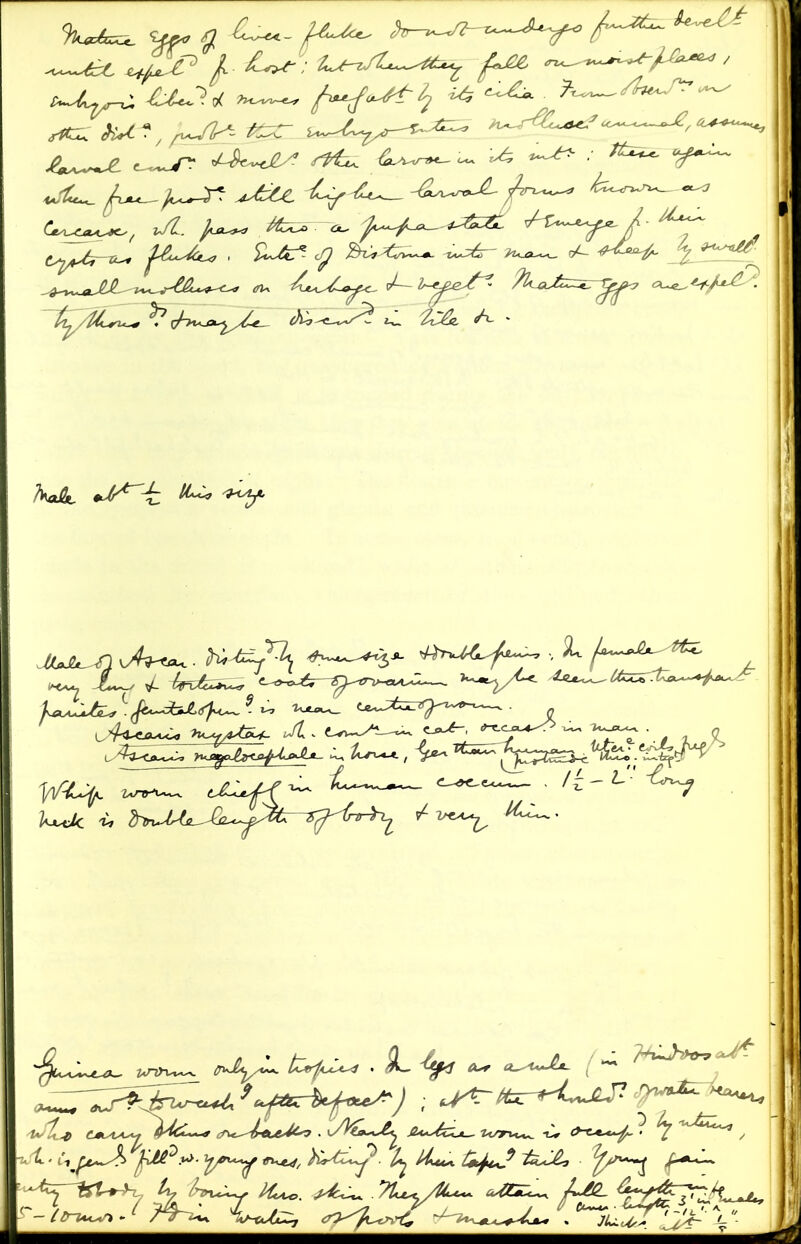 Mature Eggs of liver-fluke do not undergo further develt
until expeld fr. host; but when they fall on moist places,
Embryo is liberd & moves freely abt by its cilia. From observns on
other dista, probe tht Embryo Enters molluscs animal, assumes
larval condn & devels other larvae in its intr; these again
when free prode still higher larval forms known as
Cercariae, wh. pass thro. a pupa state & Emerge fr. their
cysts as flukes. Entce of Distoma into man & sheep by swallg
small molluscs on herbage & vegets. Mature Eggs are expeld
by thousds & may be discovd in bile &c.
Male abt 1/2 this size
Male of Ascar. distingd by smer size & double penis. In female the
very long & tortuous coats of ovarium may be seen thro. transpart
parietes. Genital openg is near centre of worm.
Ascaris mystax wh. comn in cat, occasly in man.
Ascaris megalocephale in horse, lger than human. Uterc coils freqly
(protrude thro. integt
Whip worm chiefly in human coecum. 1 1/2 - 2" long
Neck is double length of body & very thin.
Guinea worm only in tropics. In legs as a rule (in Hindoos abt
anus owg to washg after defaecn); abt the shoulds of water bearers
who carry skins on backs. Nearly entire worm is occupd by uterus,
wh. is genly filld w. young ones, distingd by their taperg tails. Young gain
entry to body by boring thro. skin. They then attain full length in fe
males
5-10 mos. Fd in waters of pools & marshes.
aver. length
Thickn abt 1/8".